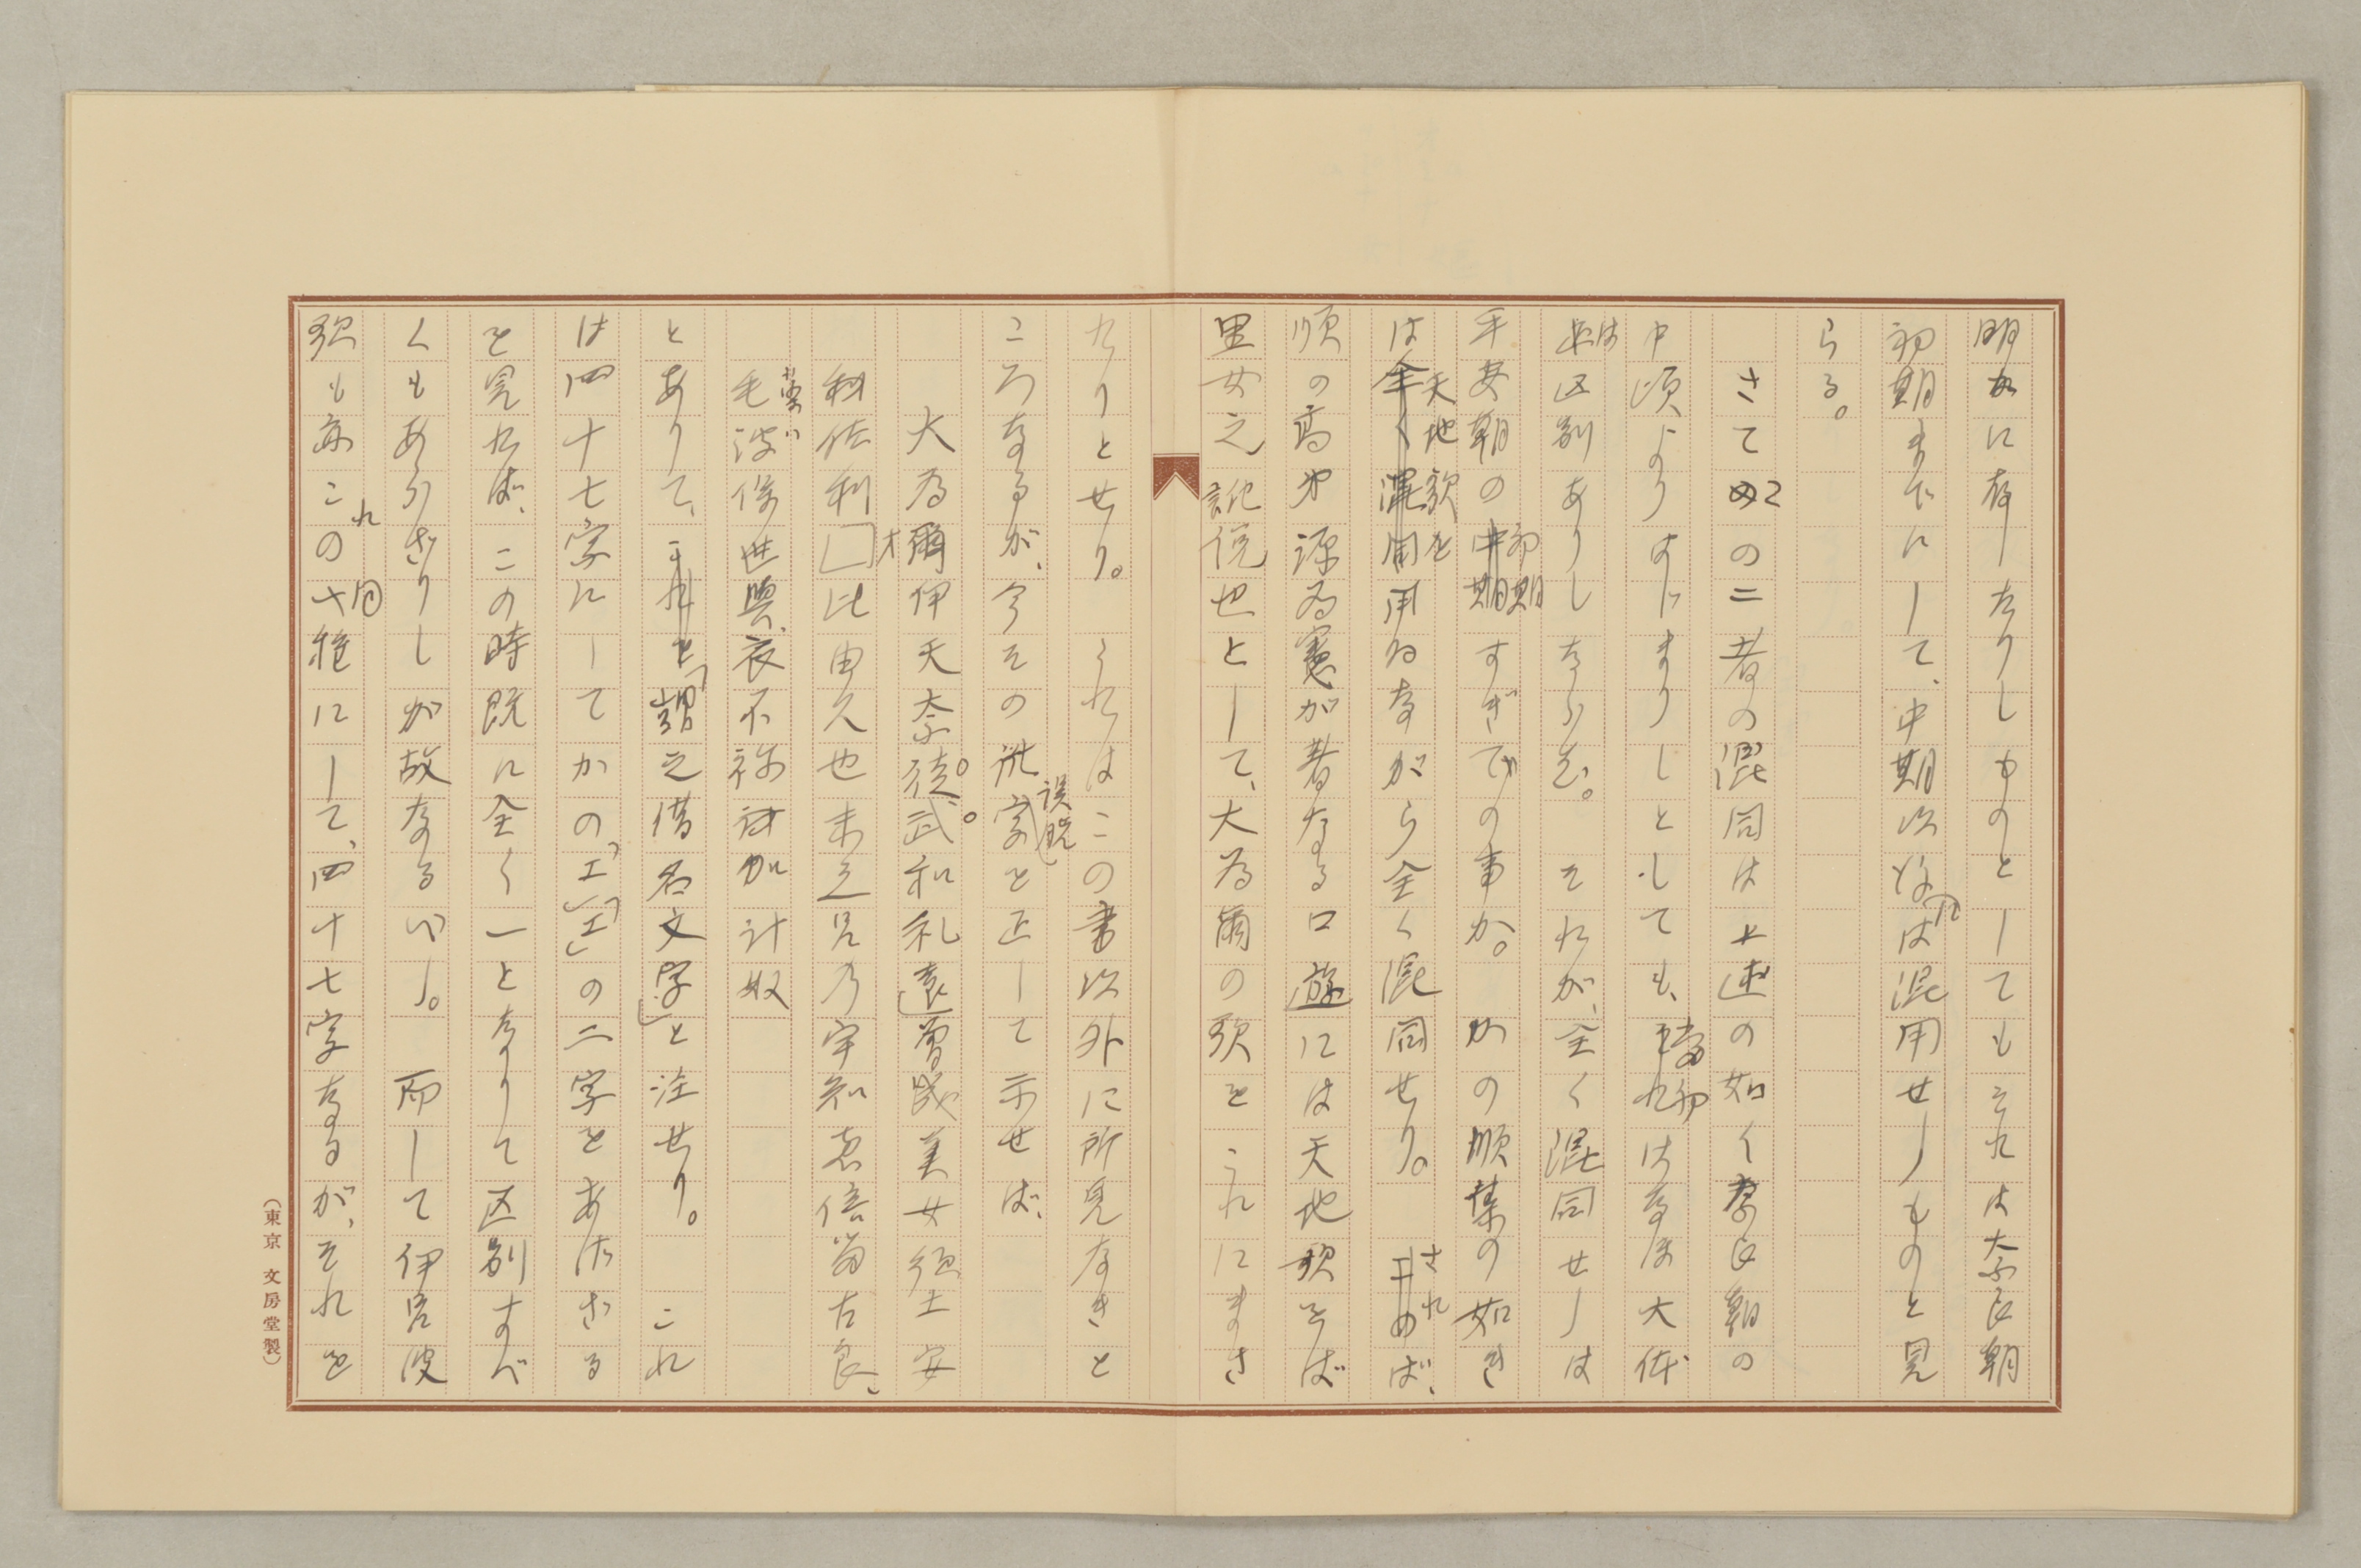 明かに存したりしものとしてもそれは奈良朝
初期までにして、中期以後には混用せしものと見
らる。
さてこの二者の混同は上述の如く奈良朝の
中頃よりはじまりしとしても、当初はなほ大体
は区別ありしならむ。それが、全く混同せしは
平安朝の初期すぎての事か。かの順集の如き
は天地歌を用ゐながら全く混同せり。されば、
順の高弟源為憲が著なる口遊には天地歌をば
里女之訛説也として、大為爾の歌をこれにまさ
れりとせり。これはこの書以外に所見なきと
ころなるが、今その誤脱を正して示せば、
大為爾伊天奈徒武和礼遠曽支美女須土安
利佐利 比由久也末之呂乃宇知恵倍留古良
毛波保世与衣不祢計加計奴
とありて、「謂之借名文字」と注せり。これ
は四十七字にしてかの「エ」「𛀀」の二字をあげざる
を見れば、この時既に全く一となりて区別すべ
くもあらざりしが故なるべし。而して伊呂波
歌も亦これと同様にして、四十七字なるが、それを
（東京 文房堂製）